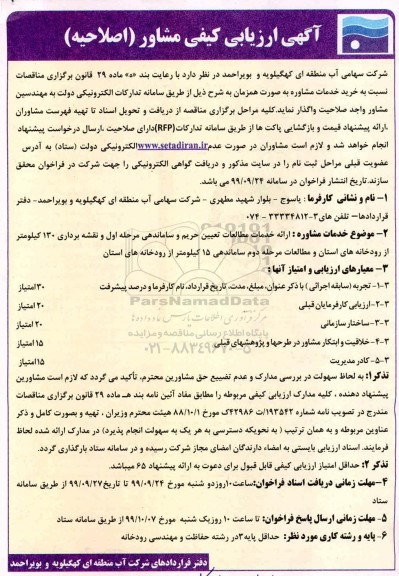 آگهی ارزیابی کیفی مشاور (اصلاحیه)
شرکت سهامی آب منطقه ای کهگیلویه و بویراحمد در نظر دارد با رعایت بند «ه» ماده ۲۹ قانون برگزاری مناقصات
نسبت به خرید خدمات مشاوره به صورت همزمان به شرح ذیل از طریق سامانه تدارکات الکترونیکی دولت به مهندسین
مشاور واجد صلاحیت واگذار نماید.کلیه مراحل برگزاری مناقصه از دریافت و تحویل اسناد تا تهیه فهرست مشاوران
،ارائه پیشنهاد قیمت و بازگشایی پاکت ها از طریق سامانه تدارکات(RFP)دارای صلاحیت ،ارسال درخواست پیشنهاد
انجام خواهد شد و لازم است مشاوران در صورت عدم www.setadiran.ir الکترونیکی دولت (ستاد) به آدرس
عضویت قبلی مراحل ثبت نام را در سایت مذکور و دریافت گواهی الکترونیکی را جهت شرکت در فراخوان محقق
سازند.تاریخ انتشار فراخوان در سامانه ۹۹/۰۹/۲۴ می باشد.
۱- نام و نشانی کارفرما : یاسوج - بلوار شهید مطهری - شرکت سهامی آب منطقه ای کهگیلویه و بویراحمد- دفتر
قراردادها– تلفن های۳-۳۳۳۳۴۸۱۲ - ۰۷۴
۲- موضوع خدمات مشاوره : ارائه خدمات مطالعات تعیین حریم و ساماندهی مرحله اول و نقشه برداری ۱۳۰ کیلومتر
از رودخانه های استان و مطالعات مرحله دوم ساماندهی ۱۵ کیلومتر از رودخانه های استان
۳- معیارهای ارزیابی و امتیاز آنها :
۳-۱- تجربه (سابقه اجرائی ) با ذکر عنوان، مبلغ، مدت، تاریخ قرارداد، نام کارفرما و درصد پیشرفت ۳۰ امتیاز
۳-۲-ارزیابی کارفرمایان قبلی ۲۰ امتیاز
۳-۳- ساختار سازمانی ۲۰ امتیاز
۳-۴- خلاقیت و ابتکار مشاور در طرحها و پژوهشهای قبلی ۱۵ امتیاز
۳-۵- کادر مدیریت ۱۵امتیاز
تذکر۱: به لحاظ سهولت در بررسی مدارک و عدم تضییع حق مشاورین محترم، تأکید می گردد که لازم است مشاورین
پیشنهاد دهنده ، کلیه مدارک ارزیابی کیفی مربوطه را مطابق مفاد آئین نامه بند هـ ماده ۲۹ قانون برگزاری مناقصات
مندرج در تصویب نامه شماره ۱۹۳۵۴۲/ت ۴۲۹۸۶ک مورخ ۸۸/۱۰/۱ هیئت محترم وزیران ، تهیه و بصورت کامل و ذکر
عناوین مربوطه و به همان ترتیب ( به نحویکه دسترسی به هر یک به سهولت انجام پذیرد) در مدارک ارائه شده لحاظ
فرمایند. اسناد ارزیابی بایستی به امضاء دارندگان امضای مجاز شرکت رسیده و در سامانه ستاد بارگذاری گردد.
تذکر ۲: حداقل امتیاز ارزیابی کیفی قابل قبول برای دعوت به ارائه پیشنهاد ۶۵ میباشد.
۴-مهلت زمانی دریافت اسناد فراخوان:ساعت۱۰روزدو شنبه مورخ ۹۹/۰۹/۲۴ تا تاریخ۹۹/۰۹/۲۷ از طریق سامانه
ستاد
۵- مهلت زمانی ارسال پاسخ فراخوان: تا ساعت ۱۰ روزیک شنبه مورخ ۹۹/۱۰/۰۷ از طریق سامانه ستاد
۶- پایه و رشته کاری مورد نظر: حداقل پایه۳در رشته حفاظت و مهندسی رودخانه
دفتر قراردادهای شرکت آب منطقه ای کهگیلویه و بویراحمد
ParsNamadData
پایگاه اطلاع رسانی مناقصه و مزایده